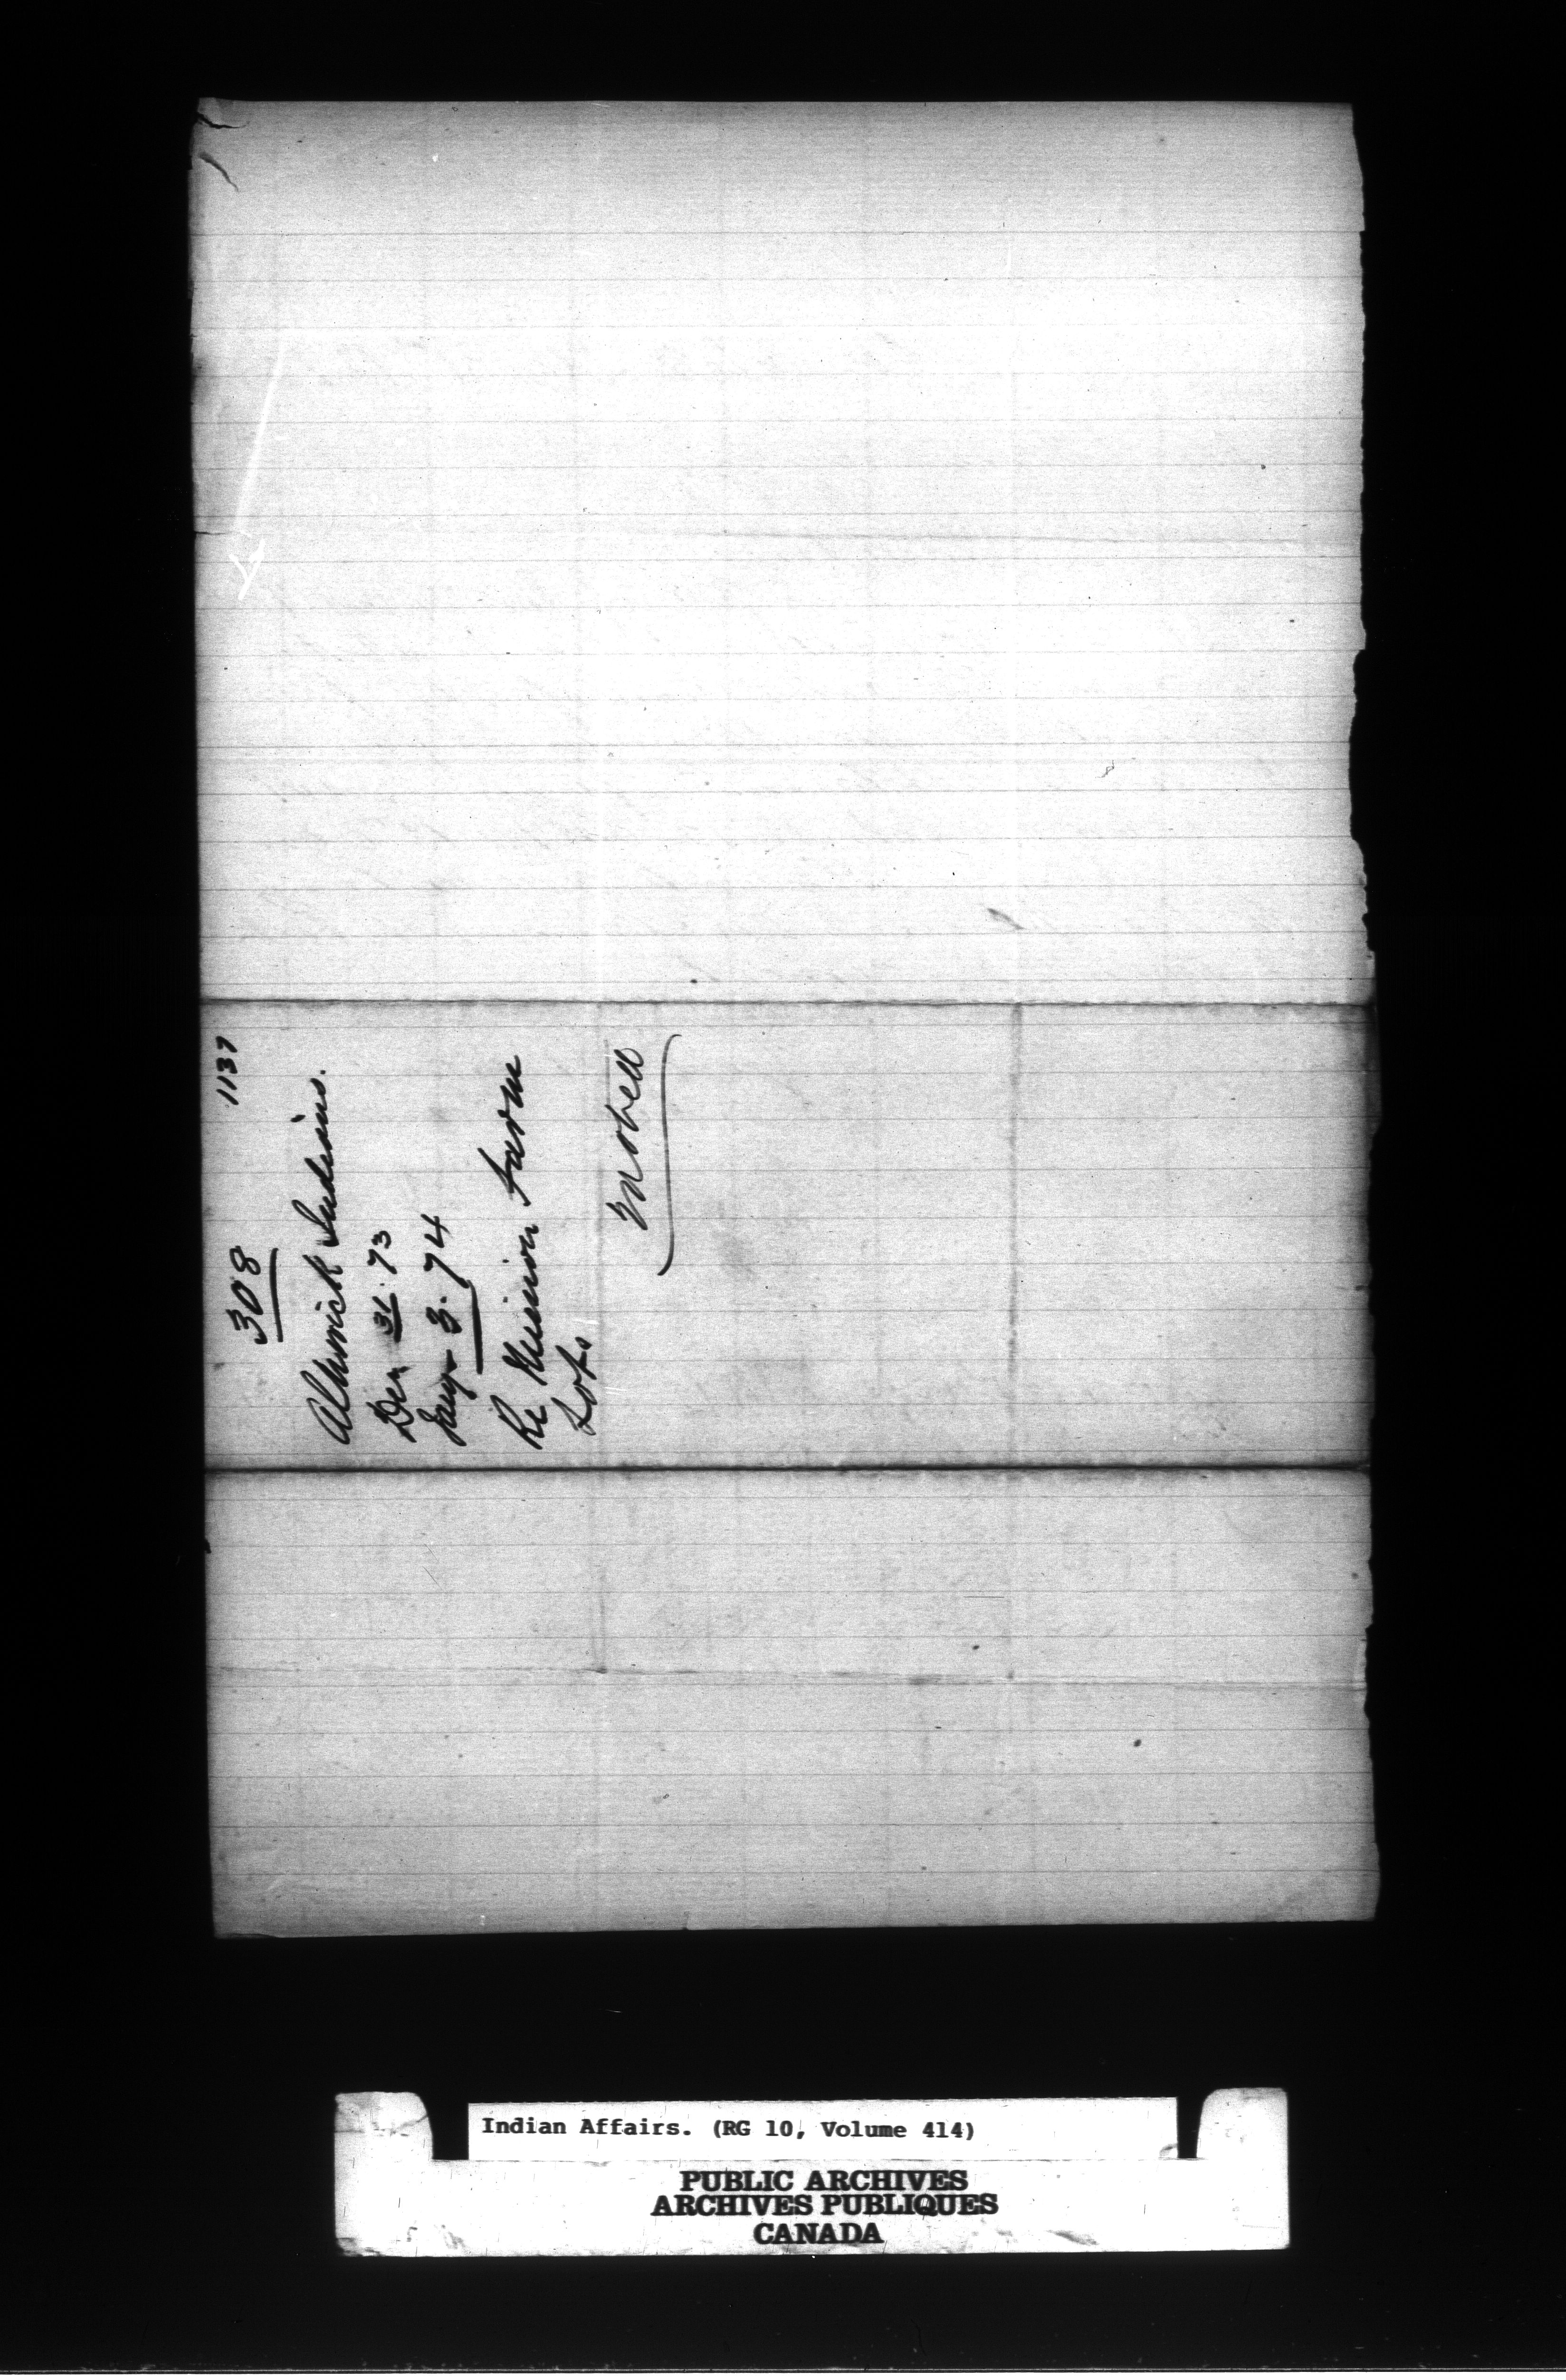 1137
308
Alnwick Indians.
Dec 31. 73
Jany 3. 74
Re Mission Farm
Lots
Indian Affairs. (RG 10, Volume 414)
PUBLIC ARCHIVES
ARCHIVES PUBLIQUES
CANADA